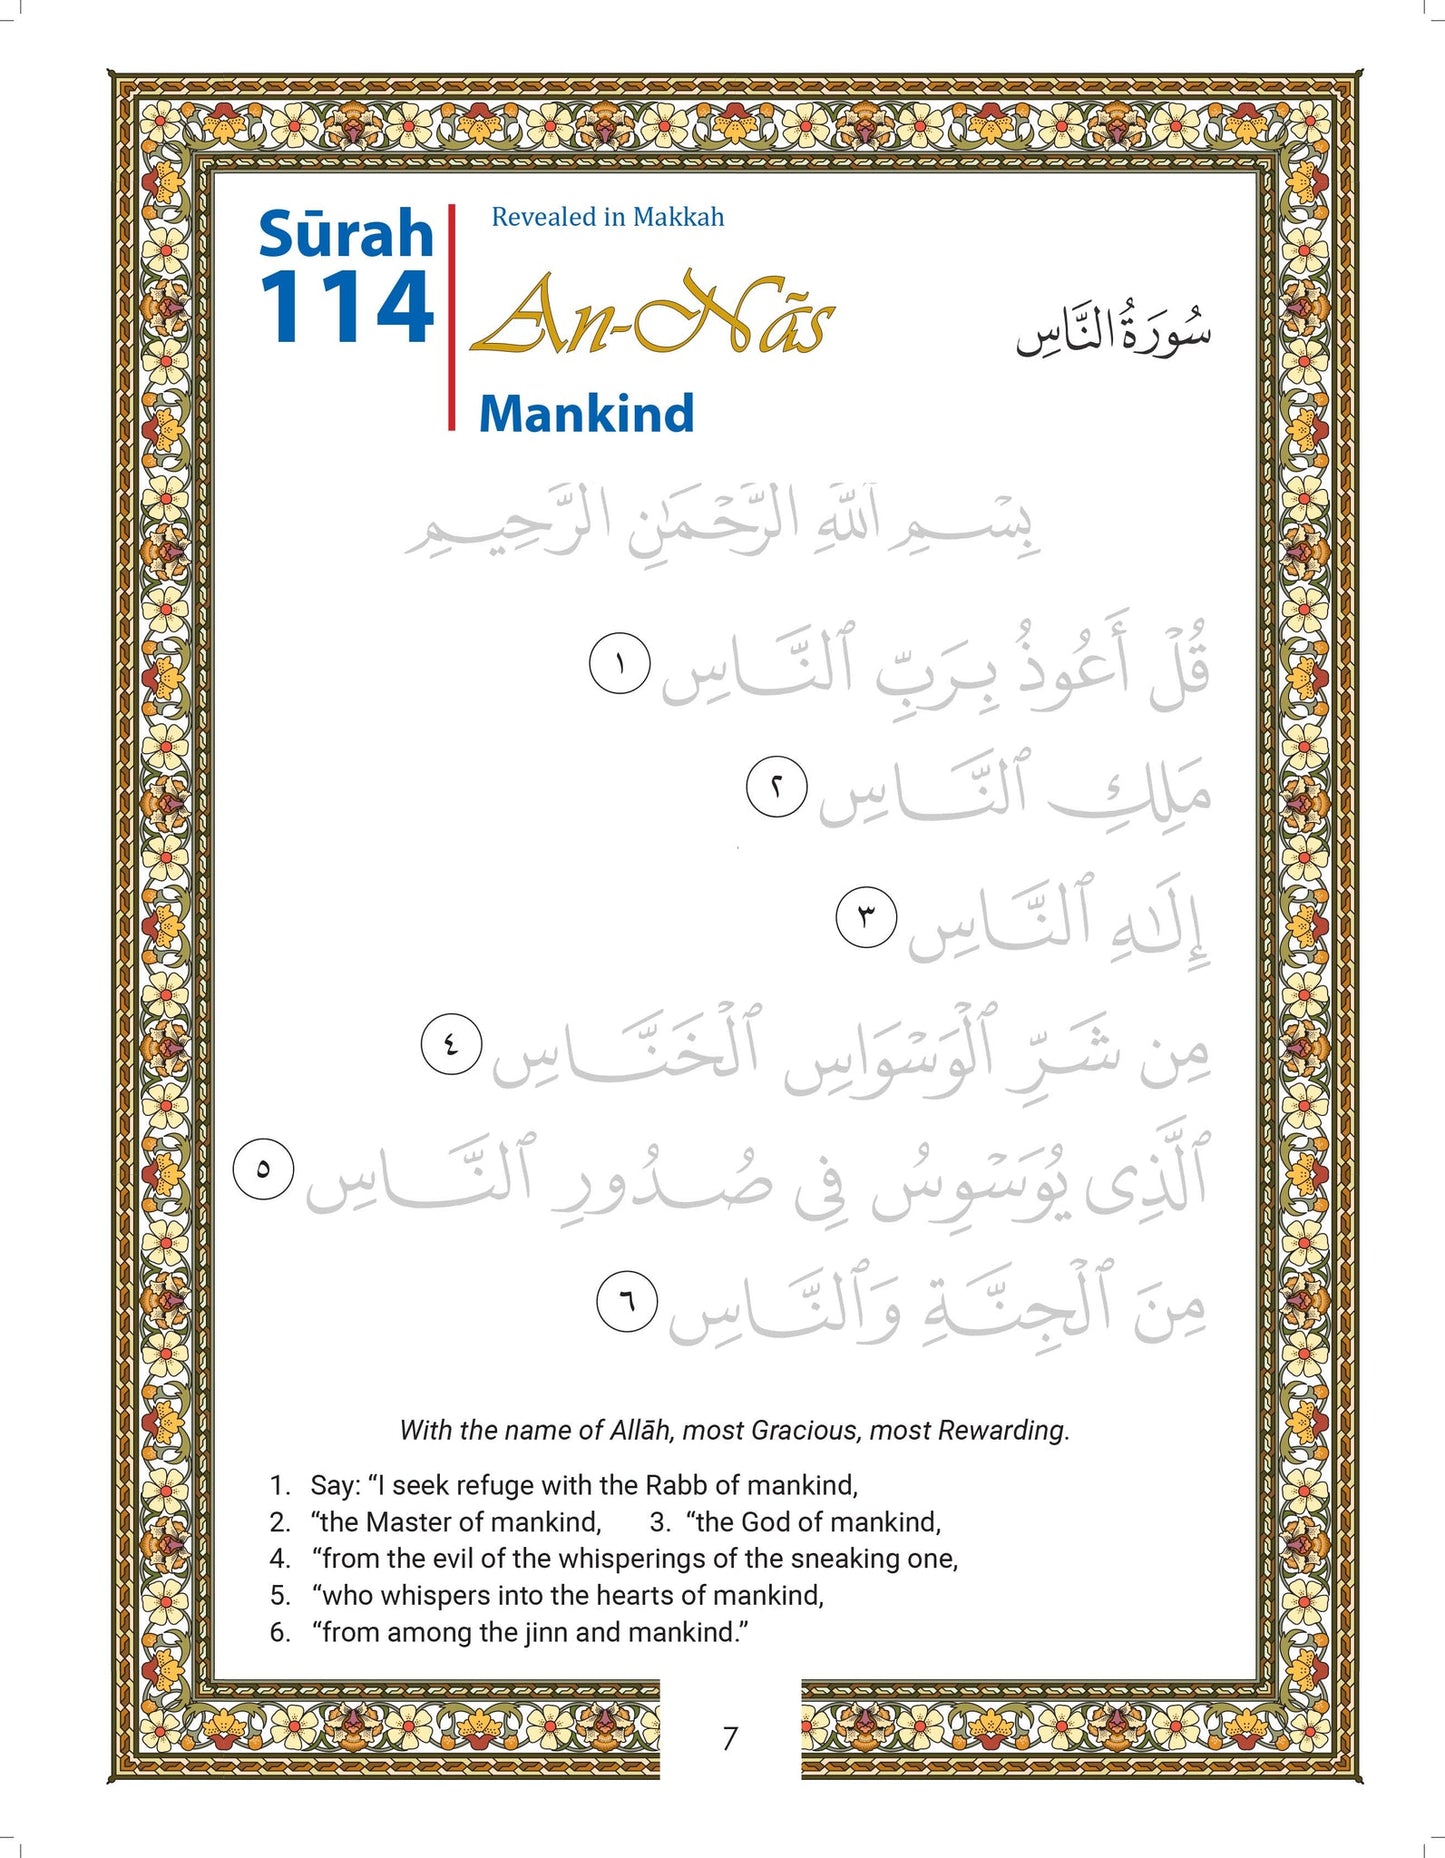 Sūrah
114
Revealed in Makkah
An-Nās
سُورَةُ النَّاسِ
Mankind
بِسْمِ ٱللَّهِ الرَّحْمَٰنِ الرَّحِيمِ
قُلْ أَعُوذُ بِرَبِّ ٱلنَّاسِ ١
مَلِكِ ٱلنَّاسِ ٢
إِلَٰهِ ٱلنَّاسِ ٣
مِن شَرِّ ٱلْوَسْوَاسِ ٱلْخَنَّاسِ ٤
ٱلَّذِى يُوَسْوِسُ فِى صُدُورِ ٱلنَّاسِ ٥
مِنَ ٱلْجِنَّةِ وَٱلنَّاسِ ٦
With the name of Allāh, most Gracious, most Rewarding.
1. Say: “I seek refuge with the Rabb of mankind,
2. “the Master of mankind, 3. “the God of mankind,
4. “from the evil of the whisperings of the sneaking one,
5. “who whispers into the hearts of mankind,
6. “from among the jinn and mankind.”
7